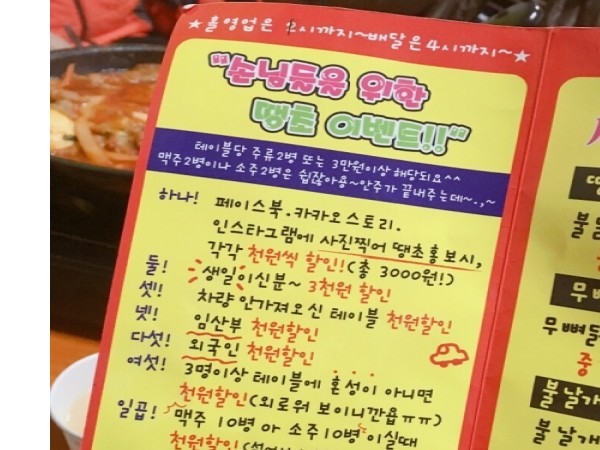 ★홀영업은 2시까지~배달은4시까지~★
"손님들을 위한
땡초 이벤트!!"
테이블당 주류2병 또는 3만원이상 해당되요^^
맥주2병이나 소주2병은 쉽잖아용~안주가 끝내주는데~.,~
하나! 페이스북.카카오스토리.
인스타그램에 사진찍어 땡초홍보시,
각각 천원씩 할인!(총 3000원!)
둘! 생일이신분~ 3천원 할인
셋! 차량 안가져오신 테이블 천원할인
넷! 임산부 천원할인
다섯! 외국인 천원할인
여섯! 3명이상 테이블에 혼성이 아니면
천원할인(외로워 보이니깐욥ㅠㅠ)
일곱! 맥주 10병 아 소주10병 이실때
천원할인
불
무뼈
무뼈닭
중
불날개
불날개